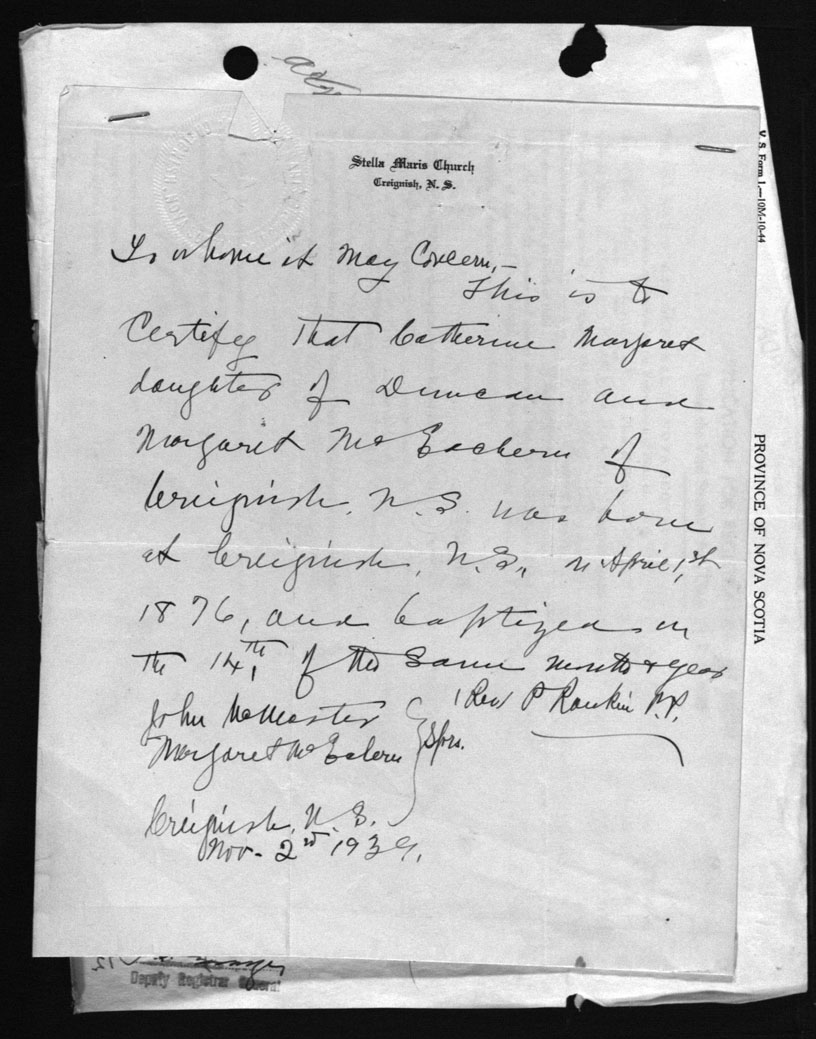 Stella Maris Church
Creignish, N. S.
To whome it May Concern,—
This is to
Certify that Catherine Margaret
daughter of Duncan and
Margaret McEachern of
Creignish, N.S. was born
at Creignish, N.S., on April 1st,
1876, and baptized on
the 14th, of the same month & year
Rev P Rankin P.P.
John McMaster
Margaret McEachern } Sprs.
Creignish, N.S.
Nov. 2nd 1939.
V. S. Form 1.—10M-10-44
PROVINCE OF NOVA SCOTIA
Deputy Registrar General